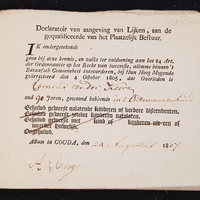 Declaratoir van aangeving van Lijken, aan de gequalificeerde van het Plaatzelijk Bestuur.
IK ondergeteekende
geve bij deze kennis, en zulks ter voldoening aan het 24 Art.
der Ordonnantie op het Recht van Successie, alomme binnen 's
Bataafsch Gemeenebest intevorderen, bij Hun Hoog Mogende
gearresteerd den 4 October 1805, dat Overleden is
Cornelis van der
oud 90 Jaren, gewoond hebbende in't
Gehuwd geweest nalatende kinderen of verdere descendenten.
Gehuwd geweest zonder kinderen natelaten.
Gehuwd geweest met kind of kinderen uit een of
meerder Huwelijk.
Ongehuwd.
Actum in GOUDA, den 22 Augustus 1807